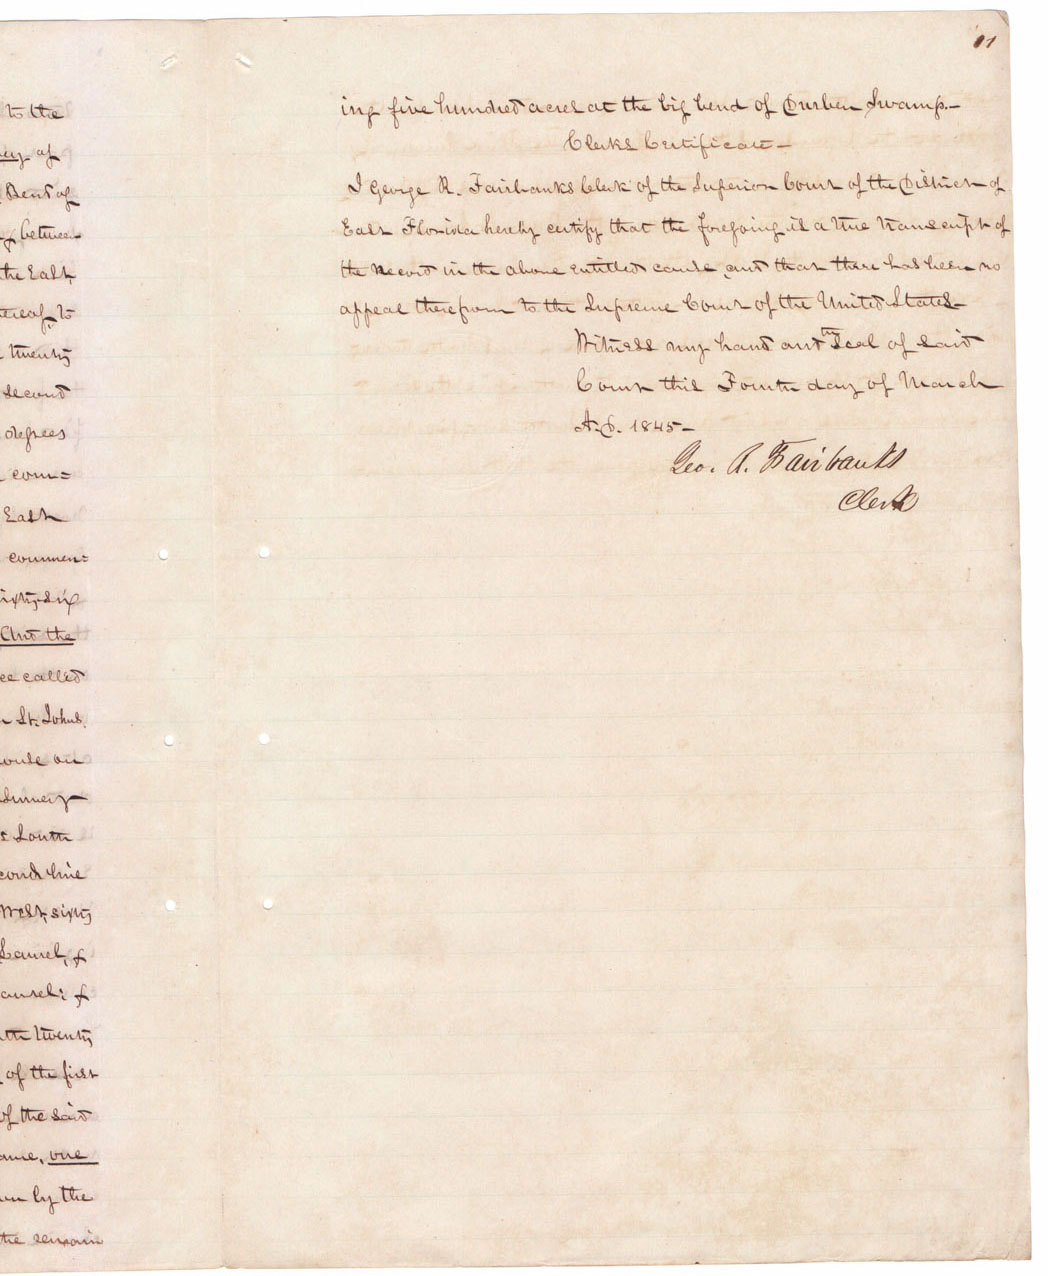 to the
of
Bend of
between
the East
thereof, to
twenty
second
degrees
com=
East
commen=
sixty-six
And the
called
St. Johns
on
Survey
South
second line
West, sixty
Laurel, &
Laurel: &
twenty
of the first
of the said
one
by the
the remain
ing five hundred acres at the big bend of Durben Swamp.-
Clerks Certificate-
I George R. Fairbanks Clerk of the Superior Court of the District of
East Florida hereby certify that the foregoing is a true transcript of
the record in the above entitled cause and that there has been no
appeal therefrom to the Supreme Court of the United States-
Witness my hand and the Seal of said
Court this Fourth day of March
A.D. 1845-
Geo. R. Fairbanks
Clerk